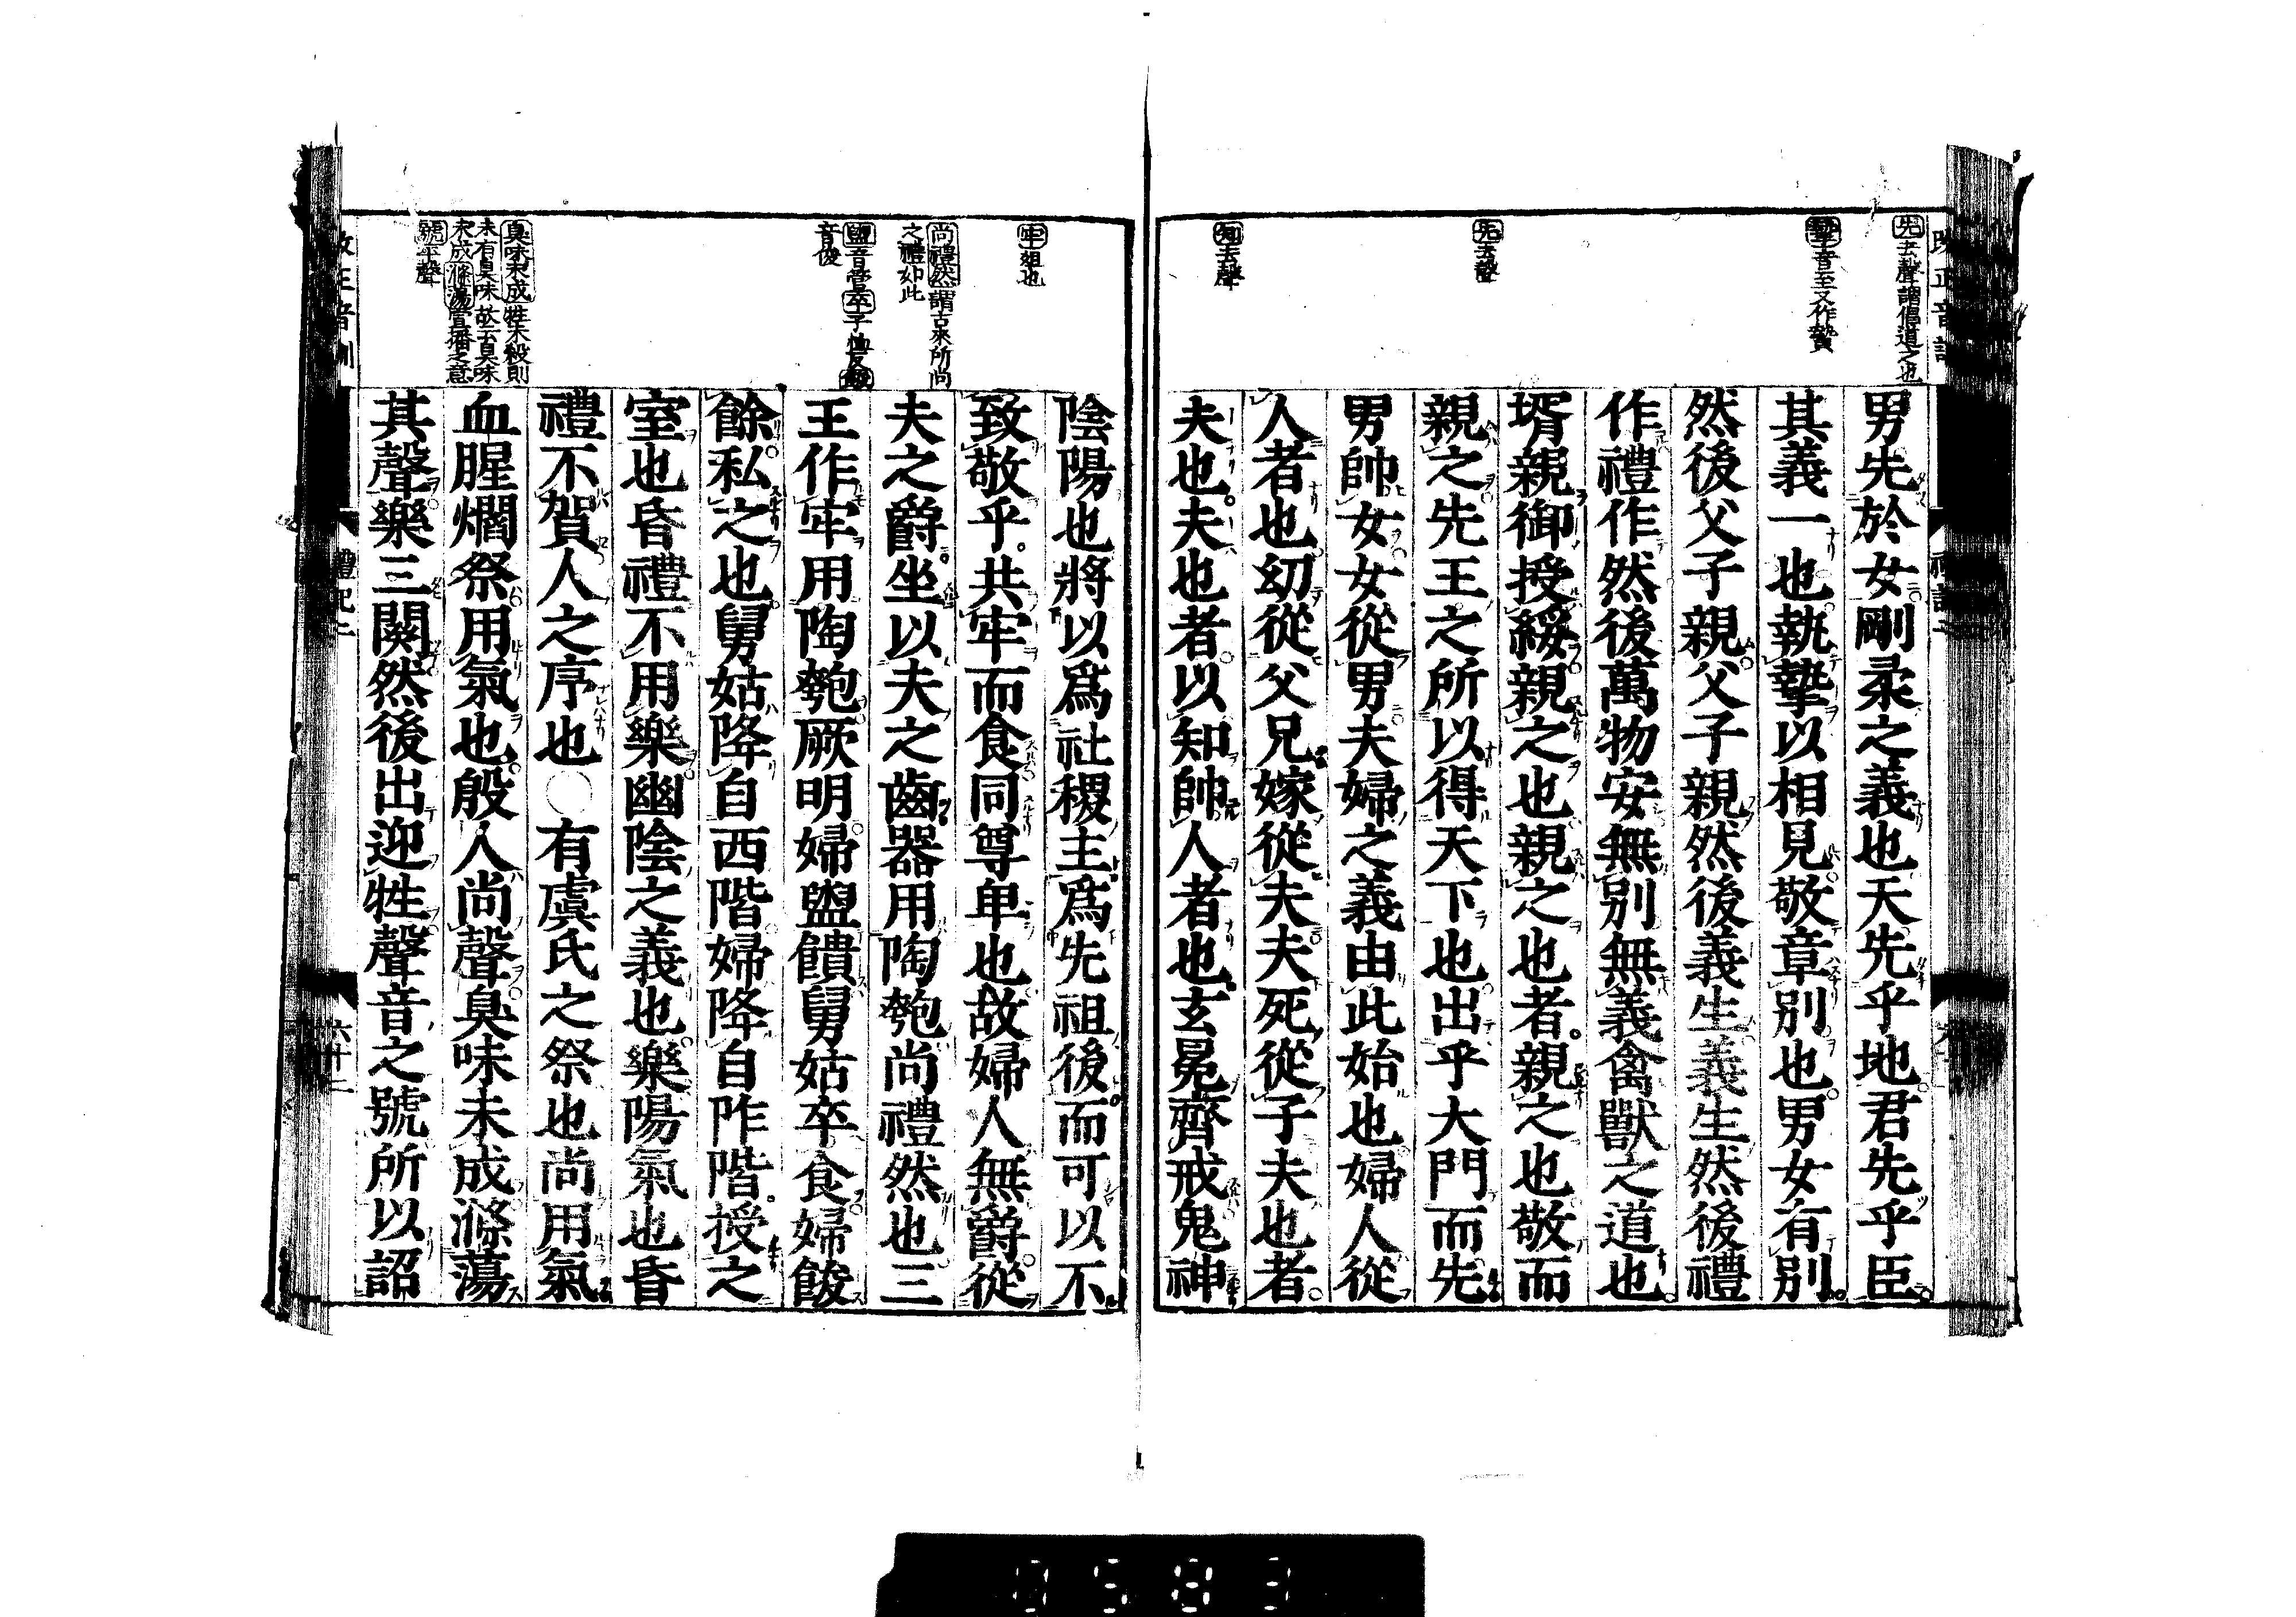 先去聲謂倡道之也
摯音至又作贄
先去聲
知去聲
男先於女剛柔之義也天先乎地君先乎臣
其義一也執摯以相見敬章別也男女有別
然後父子親父子親然後義生義生然後禮
作禮作然後萬物安無別無義禽獸之道也
壻親御授綏親之也親之也者親之也敬而
親之先王之所以得天下也出乎大門而先
男帥女女從男夫婦之義由此始也婦人從
人者也幼從父兄嫁從夫夫死從子夫也者
夫也夫也者以知帥人者也玄冕齊戒鬼神
牢俎也
尚禮然謂古來所尚
之禮如此
盥音管卒子恤反餕
音俊
臭味未成牲未殺則
未有臭味故云臭味
未成滌蕩宣播之意
號平聲
陰陽也將以爲社稷主爲先祖後而可以不
致敬乎共牢而食同尊卑也故婦人無爵從
夫之爵坐以夫之齒器用陶匏尚禮然也三
王作牢用陶匏厥明婦盥饋舅姑卒食婦餕
餘私之也舅姑降自西階婦降自阼階授之
室也昏禮不用樂幽陰之義也樂陽氣也昏
禮不賀人之序也○有虞氏之祭也尚用氣
血腥爓祭用氣也殷人尚聲臭味未成滌蕩
其聲樂三闋然後出迎牲聲音之號所以詔
禮記二
六十二
0583